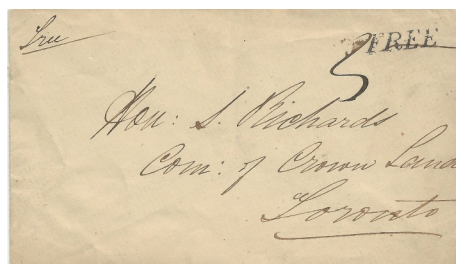 Free
FREE
5
Hon: S. Richards
Com: of Crown Land
Toronto